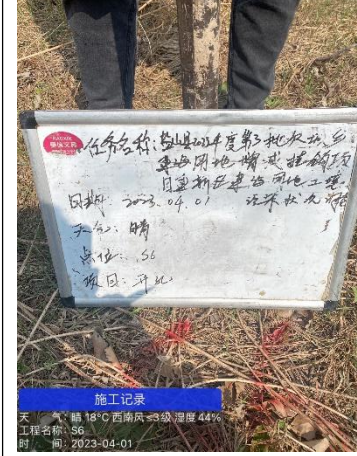 任务名称:盐山县2024年度第3批次城乡
建设用地增减挂钩项
目建新区建设用地土壤
日期:2023.04.01 污染状况调
天气:晴
点位:S6
项目:开孔
施工记录
天 气:晴 18°C 西南风≤3级 湿度 44%
工程名称:S6
时 间:2023-04-01